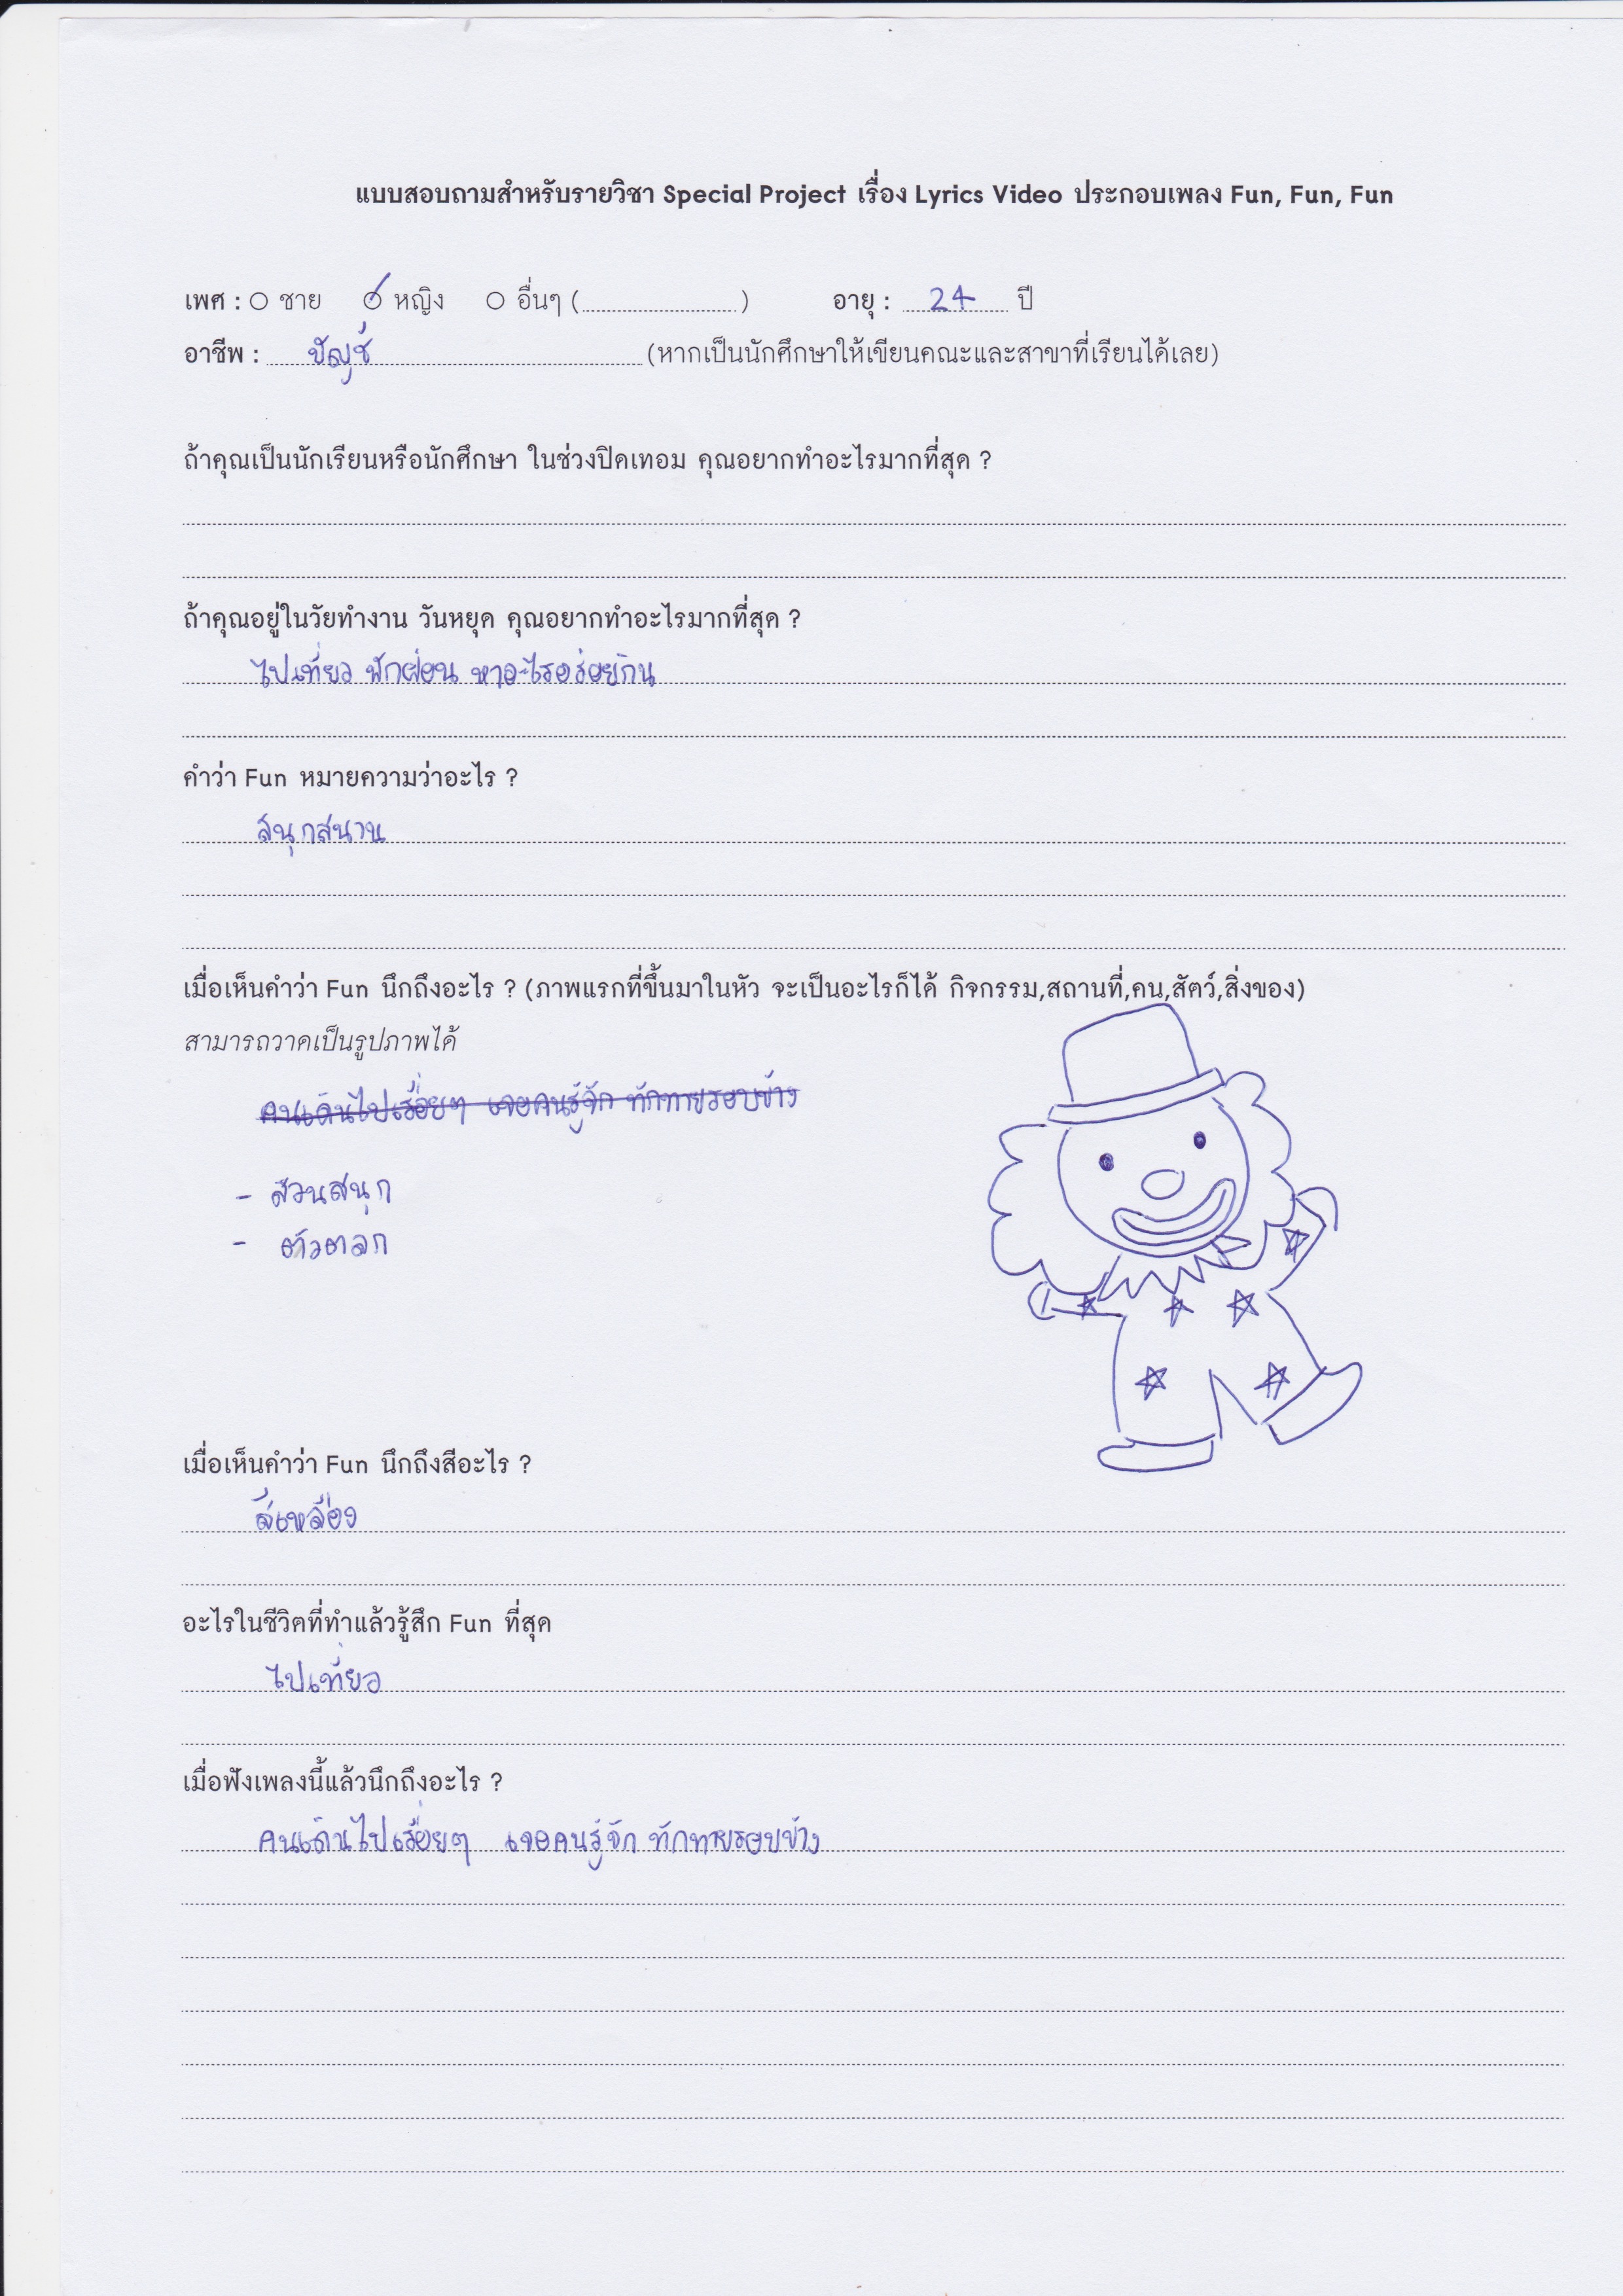 แบบสอบถามสำหรับรายวิชา Special Project เรื่อง Lyrics Video ประกอบเพลง Fun, Fun, Fun
เพศ : ○ ชาย ○ หญิง ○ อื่นๆ (....................) อายุ : 24 ปี
อาชีพ : บัญชี (หากเป็นนักศึกษาให้เขียนคณะและสาขาที่เรียนได้เลย)
ถ้าคุณเป็นนักเรียนหรือนักศึกษา ในช่วงปิดเทอม คุณอยากทำอะไรมากที่สุด ?
ถ้าคุณอยู่ในวัยทำงาน วันหยุด คุณอยากทำอะไรมากที่สุด ?
ไปเที่ยว พักผ่อน หาอะไรอร่อยกิน
คำว่า Fun หมายความว่าอะไร ?
สนุกสนาน
เมื่อเห็นคำว่า Fun นึกถึงอะไร ? (ภาพแรกที่ขึ้นมาในหัว จะเป็นอะไรก็ได้ กิจกรรม,สถานที่,คน,สัตว์,สิ่งของ)
สามารถวาดเป็นรูปภาพได้
คนเดินไปเรื่อยๆ เจอคนรู้จัก ทักทายรอบข้าง
- สวนสนุก
- ตัวตลก
เมื่อเห็นคำว่า Fun นึกถึงสีอะไร ?
สีเหลือง
อะไรในชีวิตที่ทำแล้วรู้สึก Fun ที่สุด
ไปเที่ยว
เมื่อฟังเพลงนี้แล้วนึกถึงอะไร ?
คนเดินไปเรื่อยๆ เจอคนรู้จัก ทักทายรอบข้าง